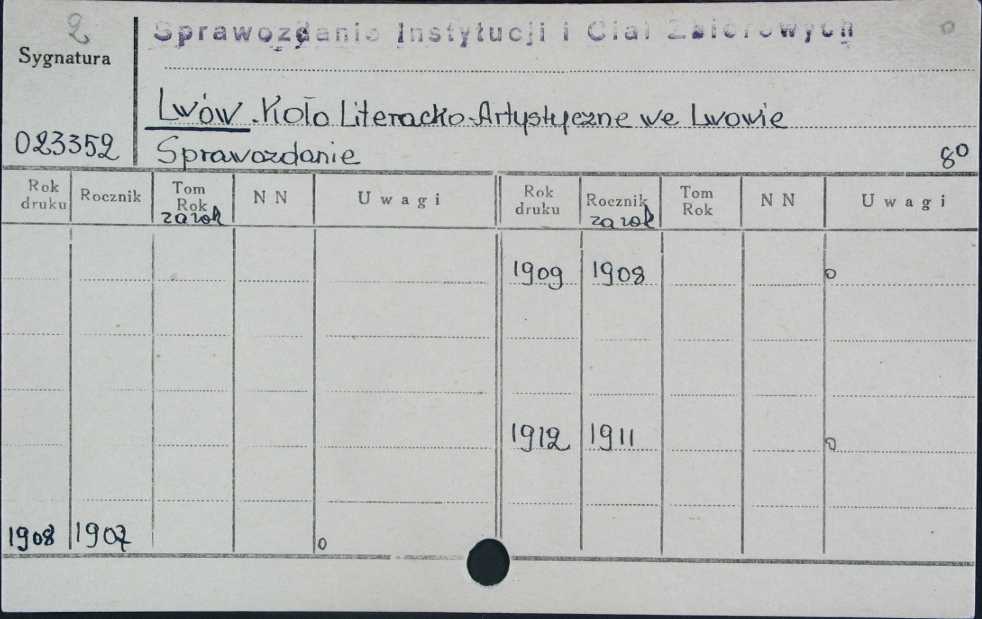 2 Sprawozdania Instytucji i Ciał Zbiorowych o
Sygnatura
Lwów. Koło Literacko-Artystyczne we Lwowie
023352 Sprawozdanie 8o
Rok druku Rocznik Tom Rok za rok N N Uwagi Rok druku Rocznik za rok Tom Rok N N Uwagi
1909 1908 o
1912 1911 o
1908 1907 o